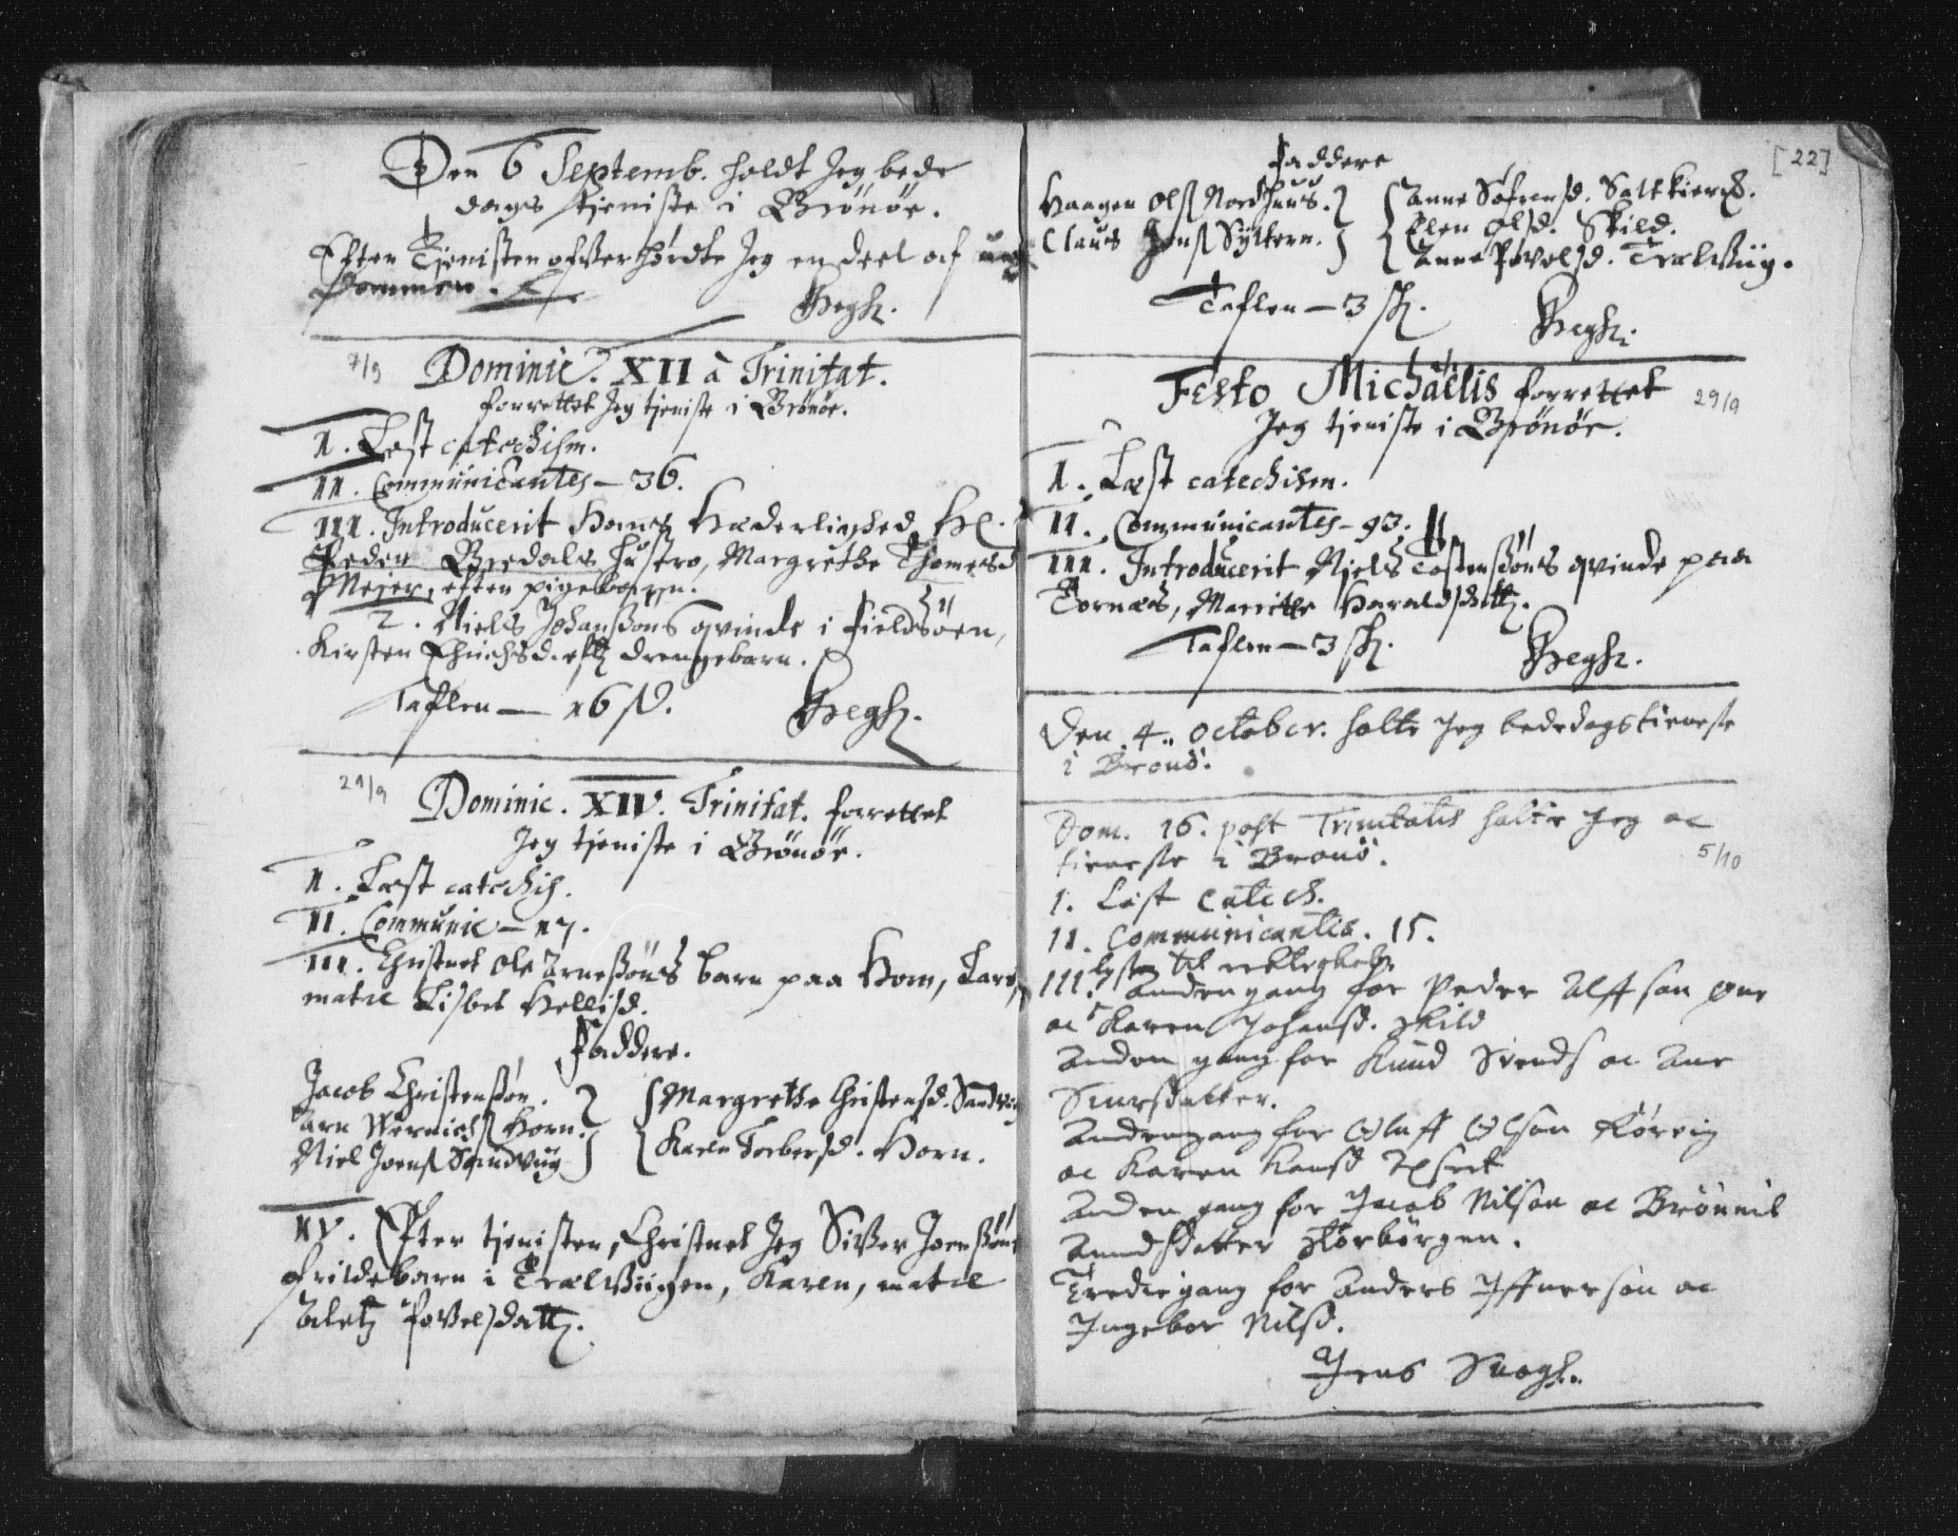 Den 6 Septemb. holdt Jeg bede
dags tjeniste i Brönöe.
Efter Tjenisten ofverhördte Jeg en deel af ung
dommen.
7/9 Dominic. XII à Trinitat.
forrettet Jeg tjeniste i Brönöe.
I. Læst catechism.
II. Communicantes – 36.
III. Introducerit Hans Hæderlighed Hr.
Peder Bredals hustro, Margrethe Thomesd
Mejer, efter pigebarn.
2. Niels Johanßöns qvinde i Fieldsöen,
Kirsten eft drengebarn.
Taflen — 16 ß.
21/9 Dominic. XIV. Trinitat. forrettet
Jeg tjeniste i Brönöe.
I. Læst catechis.
II. Communic – 17.
III. Christnet Ole Arneßöns barn paa Horn, Lars,
mater Lisbet Hellisd.
Faddere.
Jacob Christenßön.
Arn Horn.
Niel Joenß Sandvüg
Margrethe Christensd. Sandvig
Karen Torbersd. Horn.
IV. Efter tjenisten, Christnet Jeg Sißer Joenßöns
barn i Trælvüigen, Karen, mater
Aletz Povelsdatt.
[22]
Faddere
Haagen Olß Nordhuus.
Claus Jenß Sÿltern.
Anne Söfrensd. Saltkier
Elen Olsd. Skild.
Anne Povelsd. Trælvüig.
Taflen – 3 ß.
Festo Michaëlis forrettet 29/9
Jeg tjeniste i Brönöe.
I. Læst catechism.
II. Communicantes – 93.
III. Introducerit Niels Tostenßöns qvinde paa
Tornæs, Marritte Haraldsdatt.
Taflen – 3 ß.
Den 4. October. holte Jeg bededagstieneste
i Brönö.
Dom. 16. post Trinitatis holte Jeg oc
tieneste i Brönö. 5/10
1. Læst Catech.
11. Communicantes. 15.
111. Lyst til
Anden gang for Peder Alffsøn
oc Karen Johansd. Skild
Anden gang for Knud Svends oc Ane
Andengang for Oluff Olson
oc Karen Hansd
Anden gang for Jacob Nilson oc
Amundsdatter
Tredie gang for Anders oc
Ingebor Nilsd.
Jens